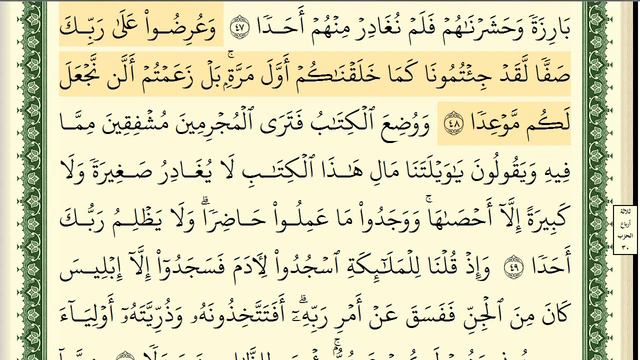 بَارِزَةٗ وَحَشَرۡنَٰهُمۡ فَلَمۡ نُغَادِرۡ مِنۡهُمۡ أَحَدٗا ٤٧ وَعُرِضُواْ عَلَىٰ رَبِّكَ
صَفّٗا لَّقَدۡ جِئۡتُمُونَا كَمَا خَلَقۡنَٰكُمۡ أَوَّلَ مَرَّةِۭۚ بَلۡ زَعَمۡتُمۡ أَلَّن نَّجۡعَلَ
لَكُم مَّوۡعِدٗا ٤٨ وَوُضِعَ ٱلۡكِتَٰبُ فَتَرَى ٱلۡمُجۡرِمِينَ مُشۡفِقِينَ مِمَّا
فِيهِ وَيَقُولُونَ يَٰوَيۡلَتَنَا مَالِ هَٰذَا ٱلۡكِتَٰبِ لَا يُغَادِرُ صَغِيرَةٗ وَلَا
كَبِيرَةً إِلَّآ أَحۡصَىٰهَاۚ وَوَجَدُواْ مَا عَمِلُواْ حَاضِرٗاۗ وَلَا يَظۡلِمُ رَبُّكَ
أَحَدٗا ٤٩ وَإِذۡ قُلۡنَا لِلۡمَلَٰٓئِكَةِ ٱسۡجُدُواْ لِأٓدَمَ فَسَجَدُوٓاْ إِلَّآ إِبۡلِيسَ
كَانَ مِنَ ٱلۡجِنِّ فَفَسَقَ عَنۡ أَمۡرِ رَبِّهِۦٓۗ أَفَتَتَّخِذُونَهُۥ وَذُرِّيَّتَهُۥٓ أَوۡلِيَآءَ
ثلاثة
أرباع
الحزب
٣٠